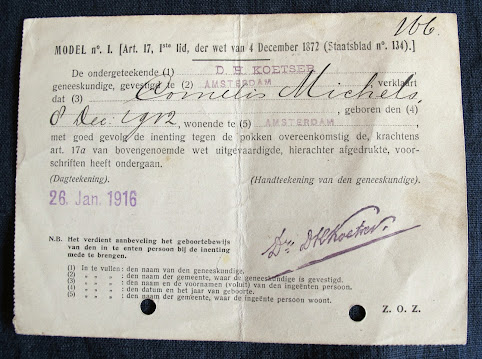 166.
MODEL nº. I. [Art. 17, 1ste lid, der wet van 4 December 1872 (Staatsblad nº. 134).]
De ondergeteekende (1) D. H. KOETSER
geneeskundige, gevestigd te (2) AMSTERDAM verklaart
dat (3) Cornelis Michels,
, geboren den (4)
8 Dec: 1912, wonende te (5) AMSTERDAM,
met goed gevolg de inenting tegen de pokken overeenkomstig de, krachtens
art. 17a van bovengenoemde wet uitgevaardigde, hierachter afgedrukte, voor-
schriften heeft ondergaan.
(Dagteekening.) (Handteekening van den geneeskundige.)
26 Jan. 1916
Dr. D H Koetser.
N.B. Het verdient aanbeveling het geboortebewijs
van den in te enten persoon bij de inenting
mede te brengen.
(1) In te vullen: den naam van den geneeskundige.
(2) „ „ „ : den naam der gemeente, waar de geneeskundige is gevestigd.
(3) „ „ „ : den naam en de voornamen (voluit) van den ingeënten persoon.
(4) „ „ „ : den datum en het jaar van geboorte.
(5) „ „ „ : den naam der gemeente, waar de ingeënte persoon woont.
Z. O. Z.